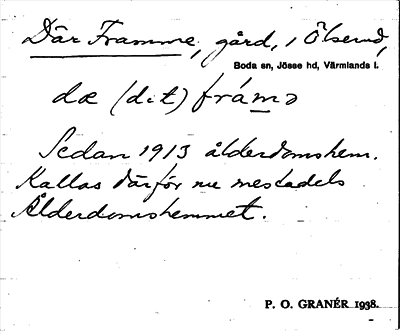 Där Framme, gård, i Ölserud,
Boda sn, Jösse hd, Värmlands l.
dæ (dit) frámə
Sedan 1913 ålderdomshem.
Kallas därför nu mestadels
Ålderdomshemmet.
P. O. GRANÉR 1938.